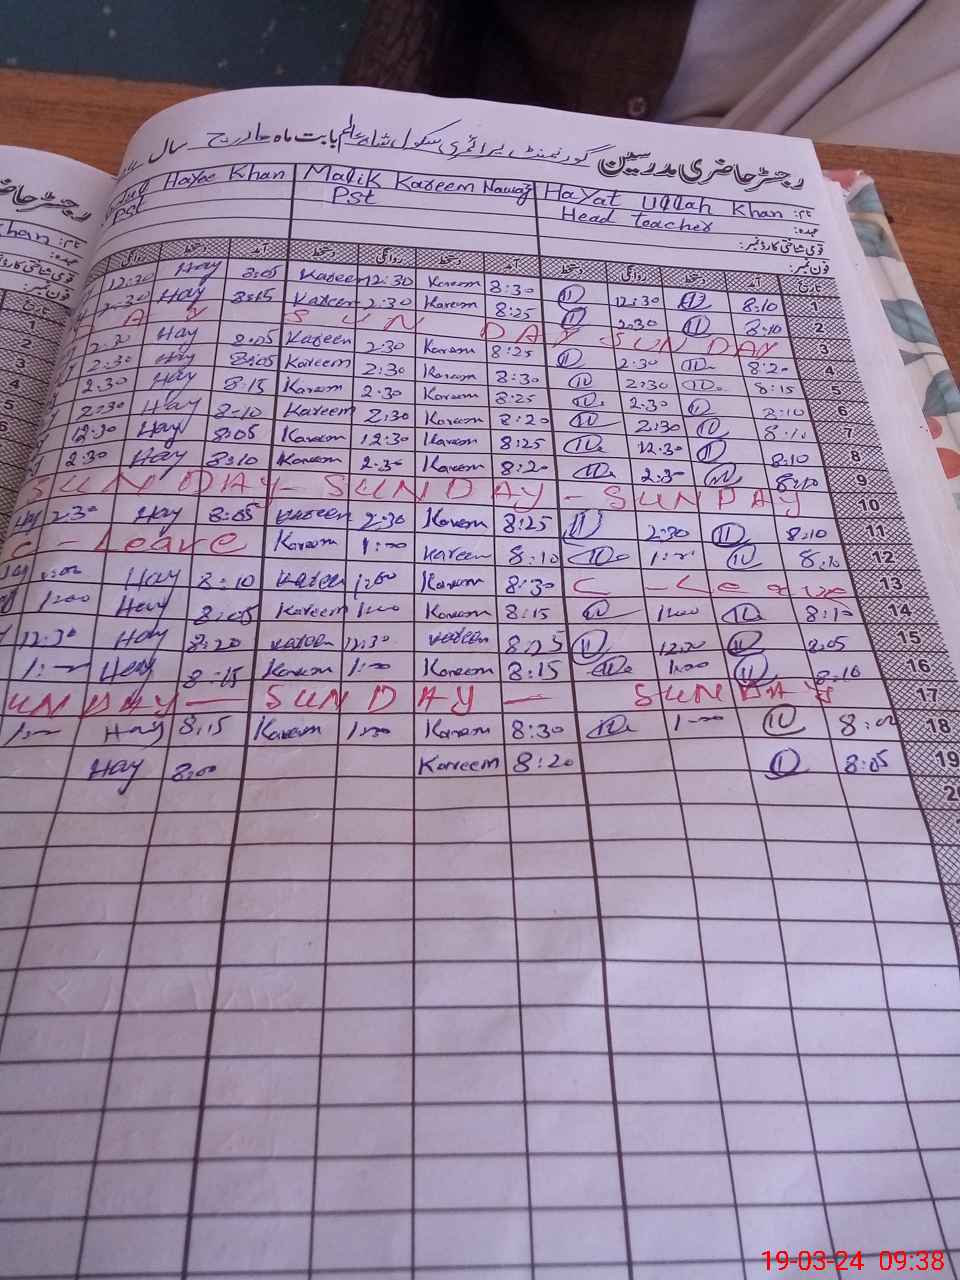 رجسٹر حاضری مدرسین گورنمنٹ پرائمری سکول شاہ عالم بابت ماہ مارچ سال
نام: Hayat Ullah Khan Malik Kareem Nawaz Hayae Khan
عہدہ: Head teacher Pst Pst
قومی شناختی کارڈ نمبر:
فون نمبر:
تاریخ آمد دستخط روانگی دستخط آمد دستخط روانگی دستخط آمد دستخط روانگی
12:30 Hay 8:05 Kareem 12:30 Kareem 8:30 12:30 8:10 1
2:30 Hay 8:15 Kareem 2:30 Kareem 8:25 2:30 8:10 2
SUN DAY SUN DAY 3
2:30 Hay 8:05 Kareem 2:30 Kareem 8:25 2:30 8:20 4
2:30 Hay 8:05 Kareem 2:30 Kareem 8:30 2:30 8:15 5
2:30 Hay 8:15 Kareem 2:30 Kareem 8:25 2:30 8:10 6
2:30 Hay 8:10 Kareem 2:30 Kareem 8:20 2:30 8:10 7
12:30 Hay 8:05 Kareem 12:30 Kareem 8:25 12:30 8:10 8
2:30 Hay 8:10 Kareem 2:30 Kareem 8:20 2:30 8:10 9
SUN DAY - SUN DAY - SUNDAY 10
Hay 2:30 Hay 8:05 Kareem 2:30 Kareem 8:25 2:30 8:10 11
C - Leave Kareem 1:00 Kareem 8:10 1:00 8:10 12
Hay 1:00 Hay 8:10 Kareem 1:00 Kareem 8:30 C - Leave 13
1:00 Hay 8:05 Kareem 1:00 Kareem 8:15 1:00 8:10 14
12:30 Hay 8:20 Kareem 12:30 Kareem 8:25 12:30 8:05 15
1:00 Hay 8:15 Kareem 1:00 Kareem 8:15 1:00 8:10 16
UN DAY - SUN DAY - SUN DAY 17
1:00 Hay 8:15 Kareem 1:00 Kareem 8:30 1:00 8:00 18
Hay 8:00 Kareem 8:20 8:05 19
19-03-24 09:38